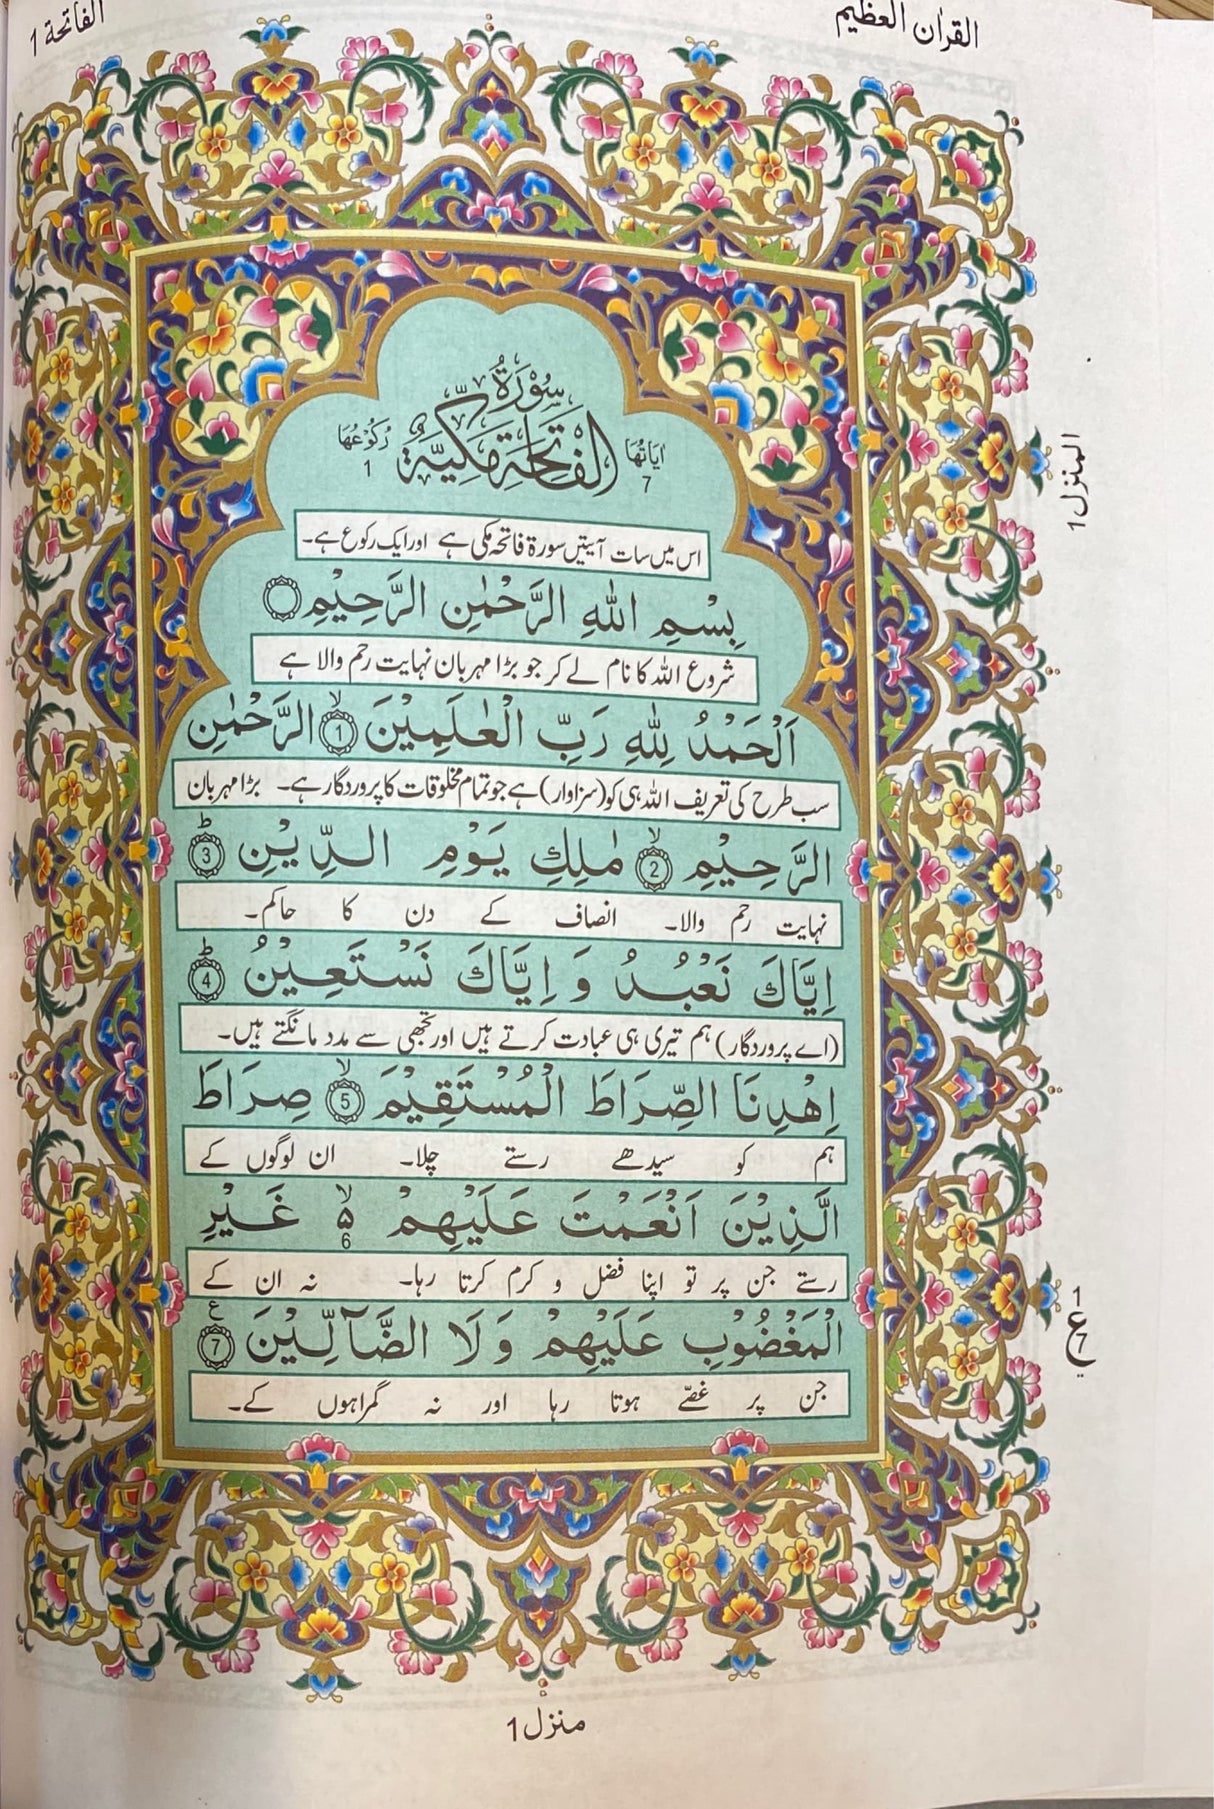 القراٰن العظیم
الفاتحة 1
سُوْرَةُ
الْفَاتِحَةِ مَكِّيَّةٌ
اٰيَاتُهَا
7
رُكُوْعُهَا
1
اس میں سات آیتیں سورة فاتحہ مکی ہے اور ایک رکوع ہے۔
بِسْمِ اللهِ الرَّحْمٰنِ الرَّحِيْمِ
شروع اللہ کا نام لے کر جو بڑا مہربان نہایت رحم والا ہے
اَلْحَمْدُ لِلّٰهِ رَبِّ الْعٰلَمِيْنَ ۙ 1 الرَّحْمٰنِ
سب طرح کی تعریف اللہ ہی کو (سزاوار) ہے جو تمام مخلوقات کا پروردگار ہے۔ بڑا مہربان
الرَّحِيْمِ ۙ 2 مٰلِكِ يَوْمِ الدِّيْنِ ؕ 3
نہایت رحم والا۔ انصاف کے دن کا حاکم۔
اِيَّاكَ نَعْبُدُ وَ اِيَّاكَ نَسْتَعِيْنُ ؕ 4
(اے پروردگار) ہم تیری ہی عبادت کرتے ہیں اور تجھی سے مدد مانگتے ہیں۔
اِهْدِنَا الصِّرَاطَ الْمُسْتَقِيْمَ ۙ 5 صِرَاطَ
ہم کو سیدھے رستے چلا۔ ان لوگوں کے
الَّذِيْنَ اَنْعَمْتَ عَلَيْهِمْ ۙ ۵ 6 غَيْرِ
رستے جن پر تو اپنا فضل و کرم کرتا رہا۔ نہ ان کے
الْمَغْضُوْبِ عَلَيْهِمْ وَ لَا الضَّآلِّيْنَ ع 7
جن پر غصّے ہوتا رہا اور نہ گمراہوں کے۔
المنزل 1
1
ع
7
منزل 1